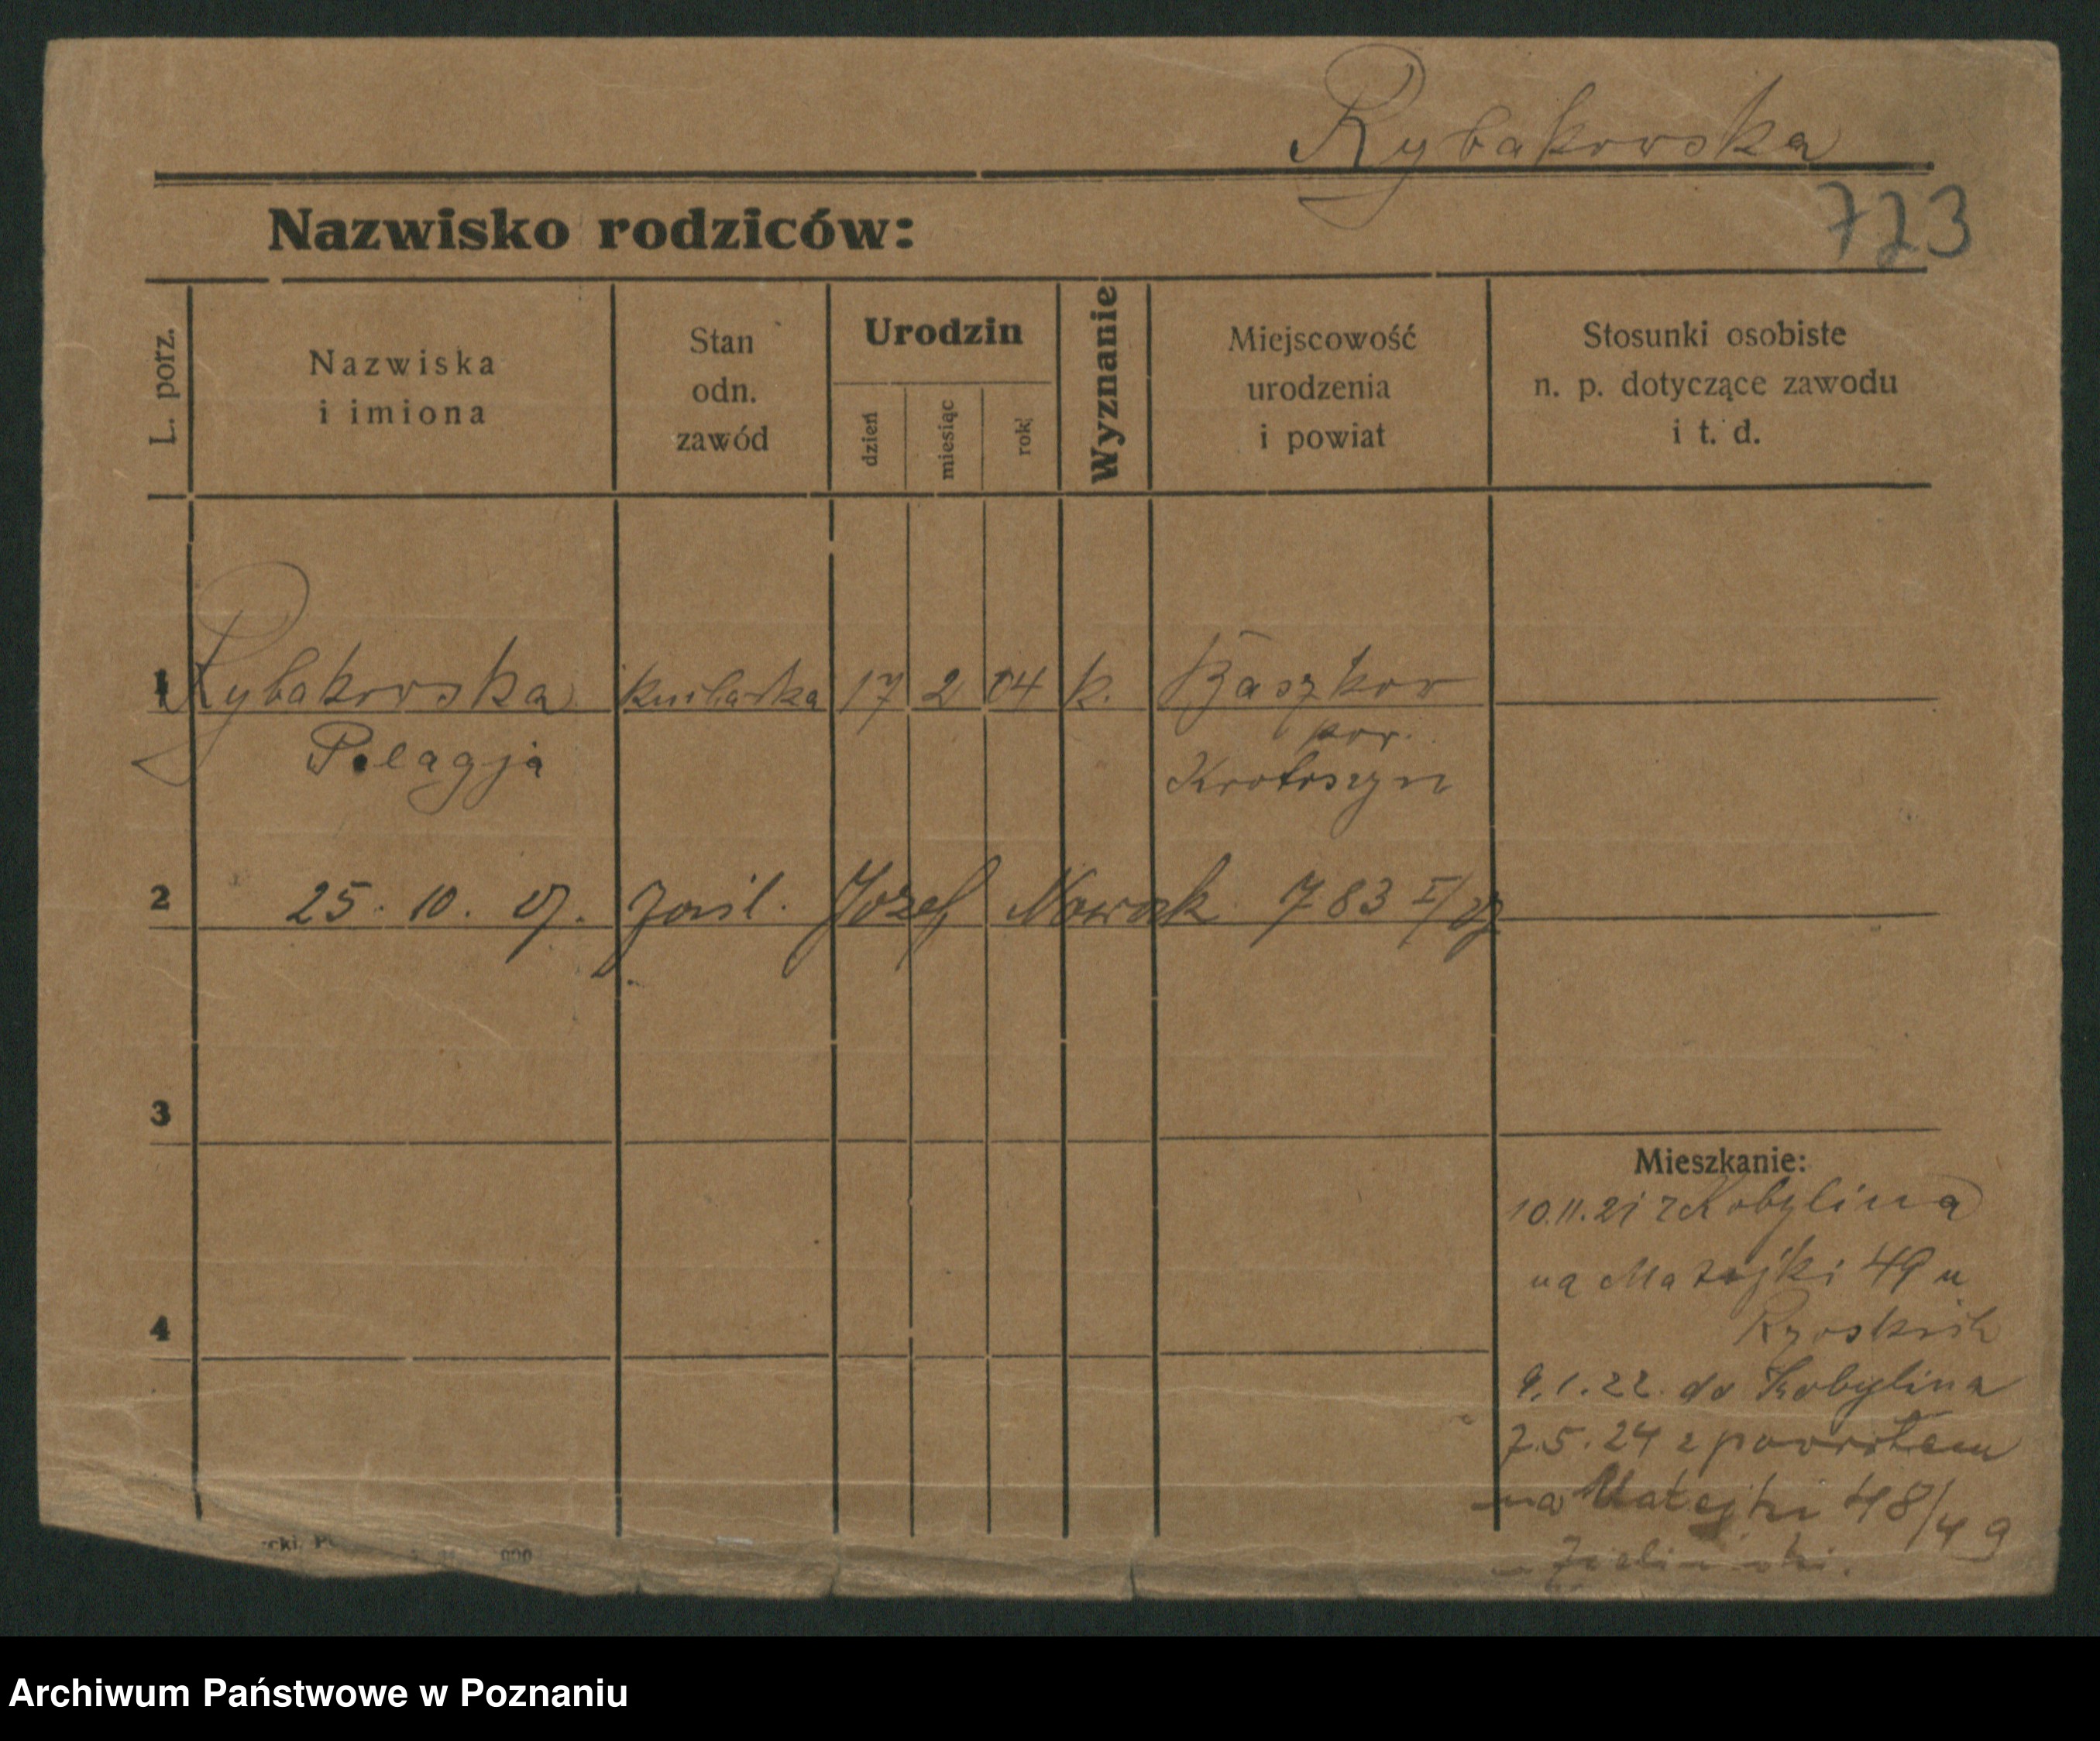 Rybakowska
723
Nazwisko rodziców:
L. porz.
Nazwiska
i imiona
Stan
odn.
zawód
Urodzin
dzień
miesiąc
rok
Wyznanie
Miejscowość
urodzenia
i powiat
Stosunki osobiste
n. p. dotyczące zawodu
i t. d.
1 Rybakowska kucharka 17 2 04 k. Baszkow
Pelagja
pow.
Krotoszyn
2 25. 10. 27. Józef Nowak 783
3
4
Mieszkanie:
10.11.21 z Kobylina
na Matejki 49 u
9.1.22. do Kobylina
7.5.24 z powrotem
na Matejki 48/49
000
Archiwum Państwowe w Poznaniu